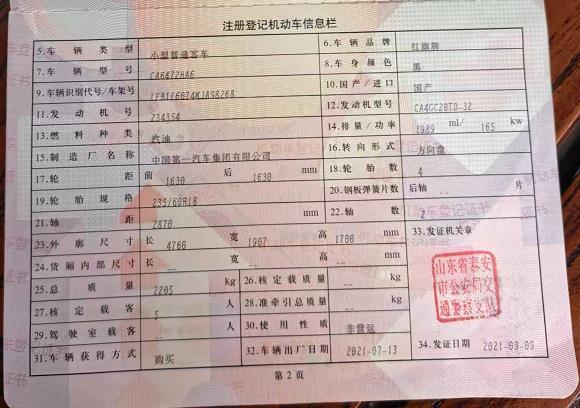 注册登记机动车信息栏
5.车辆类型 小型普通客车 6.车辆品牌 红旗牌
7.车辆型号 CA6472HA6 8.车身颜色 黑
9.车辆识别代号/车架号 10.国产/进口 国产
11.发动机号 234354 12.发动机型号 CA4GC20TD-32
13.燃料种类 汽油 14.排量/功率 1989 ml/ 165 kw
15.制造厂名称 中国第一汽车集团有限公司 16.转向形式 方向盘
17.轮距 前 1630 后 1630 mm 18.轮胎数 4
19.轮胎规格 235/60R18 20.钢板弹簧片数 后轴 -- 片
21.轴距 2870 mm 22.轴数 2
23.外廓尺寸 长 4760 宽 1907 高 1700 mm 33.发证机关章
24.货厢内部尺寸 长 -- 宽 -- 高 -- mm
25.总质量 2205 kg 26.核定载质量 -- kg
27.核定载客 5 人 28.准牵引总质量 -- kg
29.驾驶室载客 -- 人 30.使用性质 非营运
31.车辆获得方式 购买 32.车辆出厂日期 2021-07-13 34.发证日期 2021-09-09
山东省泰安
市公安局交
通警察支队
第2页